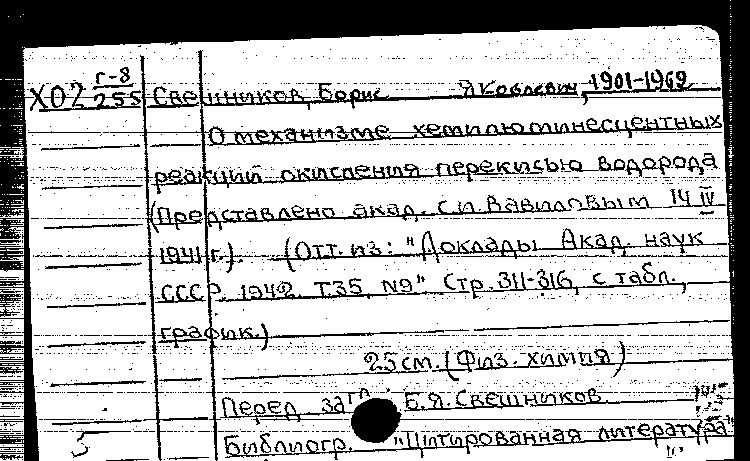 Х02 г-8/255 Свешников, Борис Яковлевич, 1901-1969
О механизме хемилюминесцентных
реакций окисления перекисью водорода
(Представлено акад. С.И. Вавиловым 14 IV
1941 г.). (Отт. из: "Доклады Акад. наук
СССР. 1942. Т.35, N9" Стр. 311-316, с табл.,
график.)
25 см. (Физ. химия)
Перед загл.: Б.Я. Свешников.
Библиогр. "Цитированная литература"